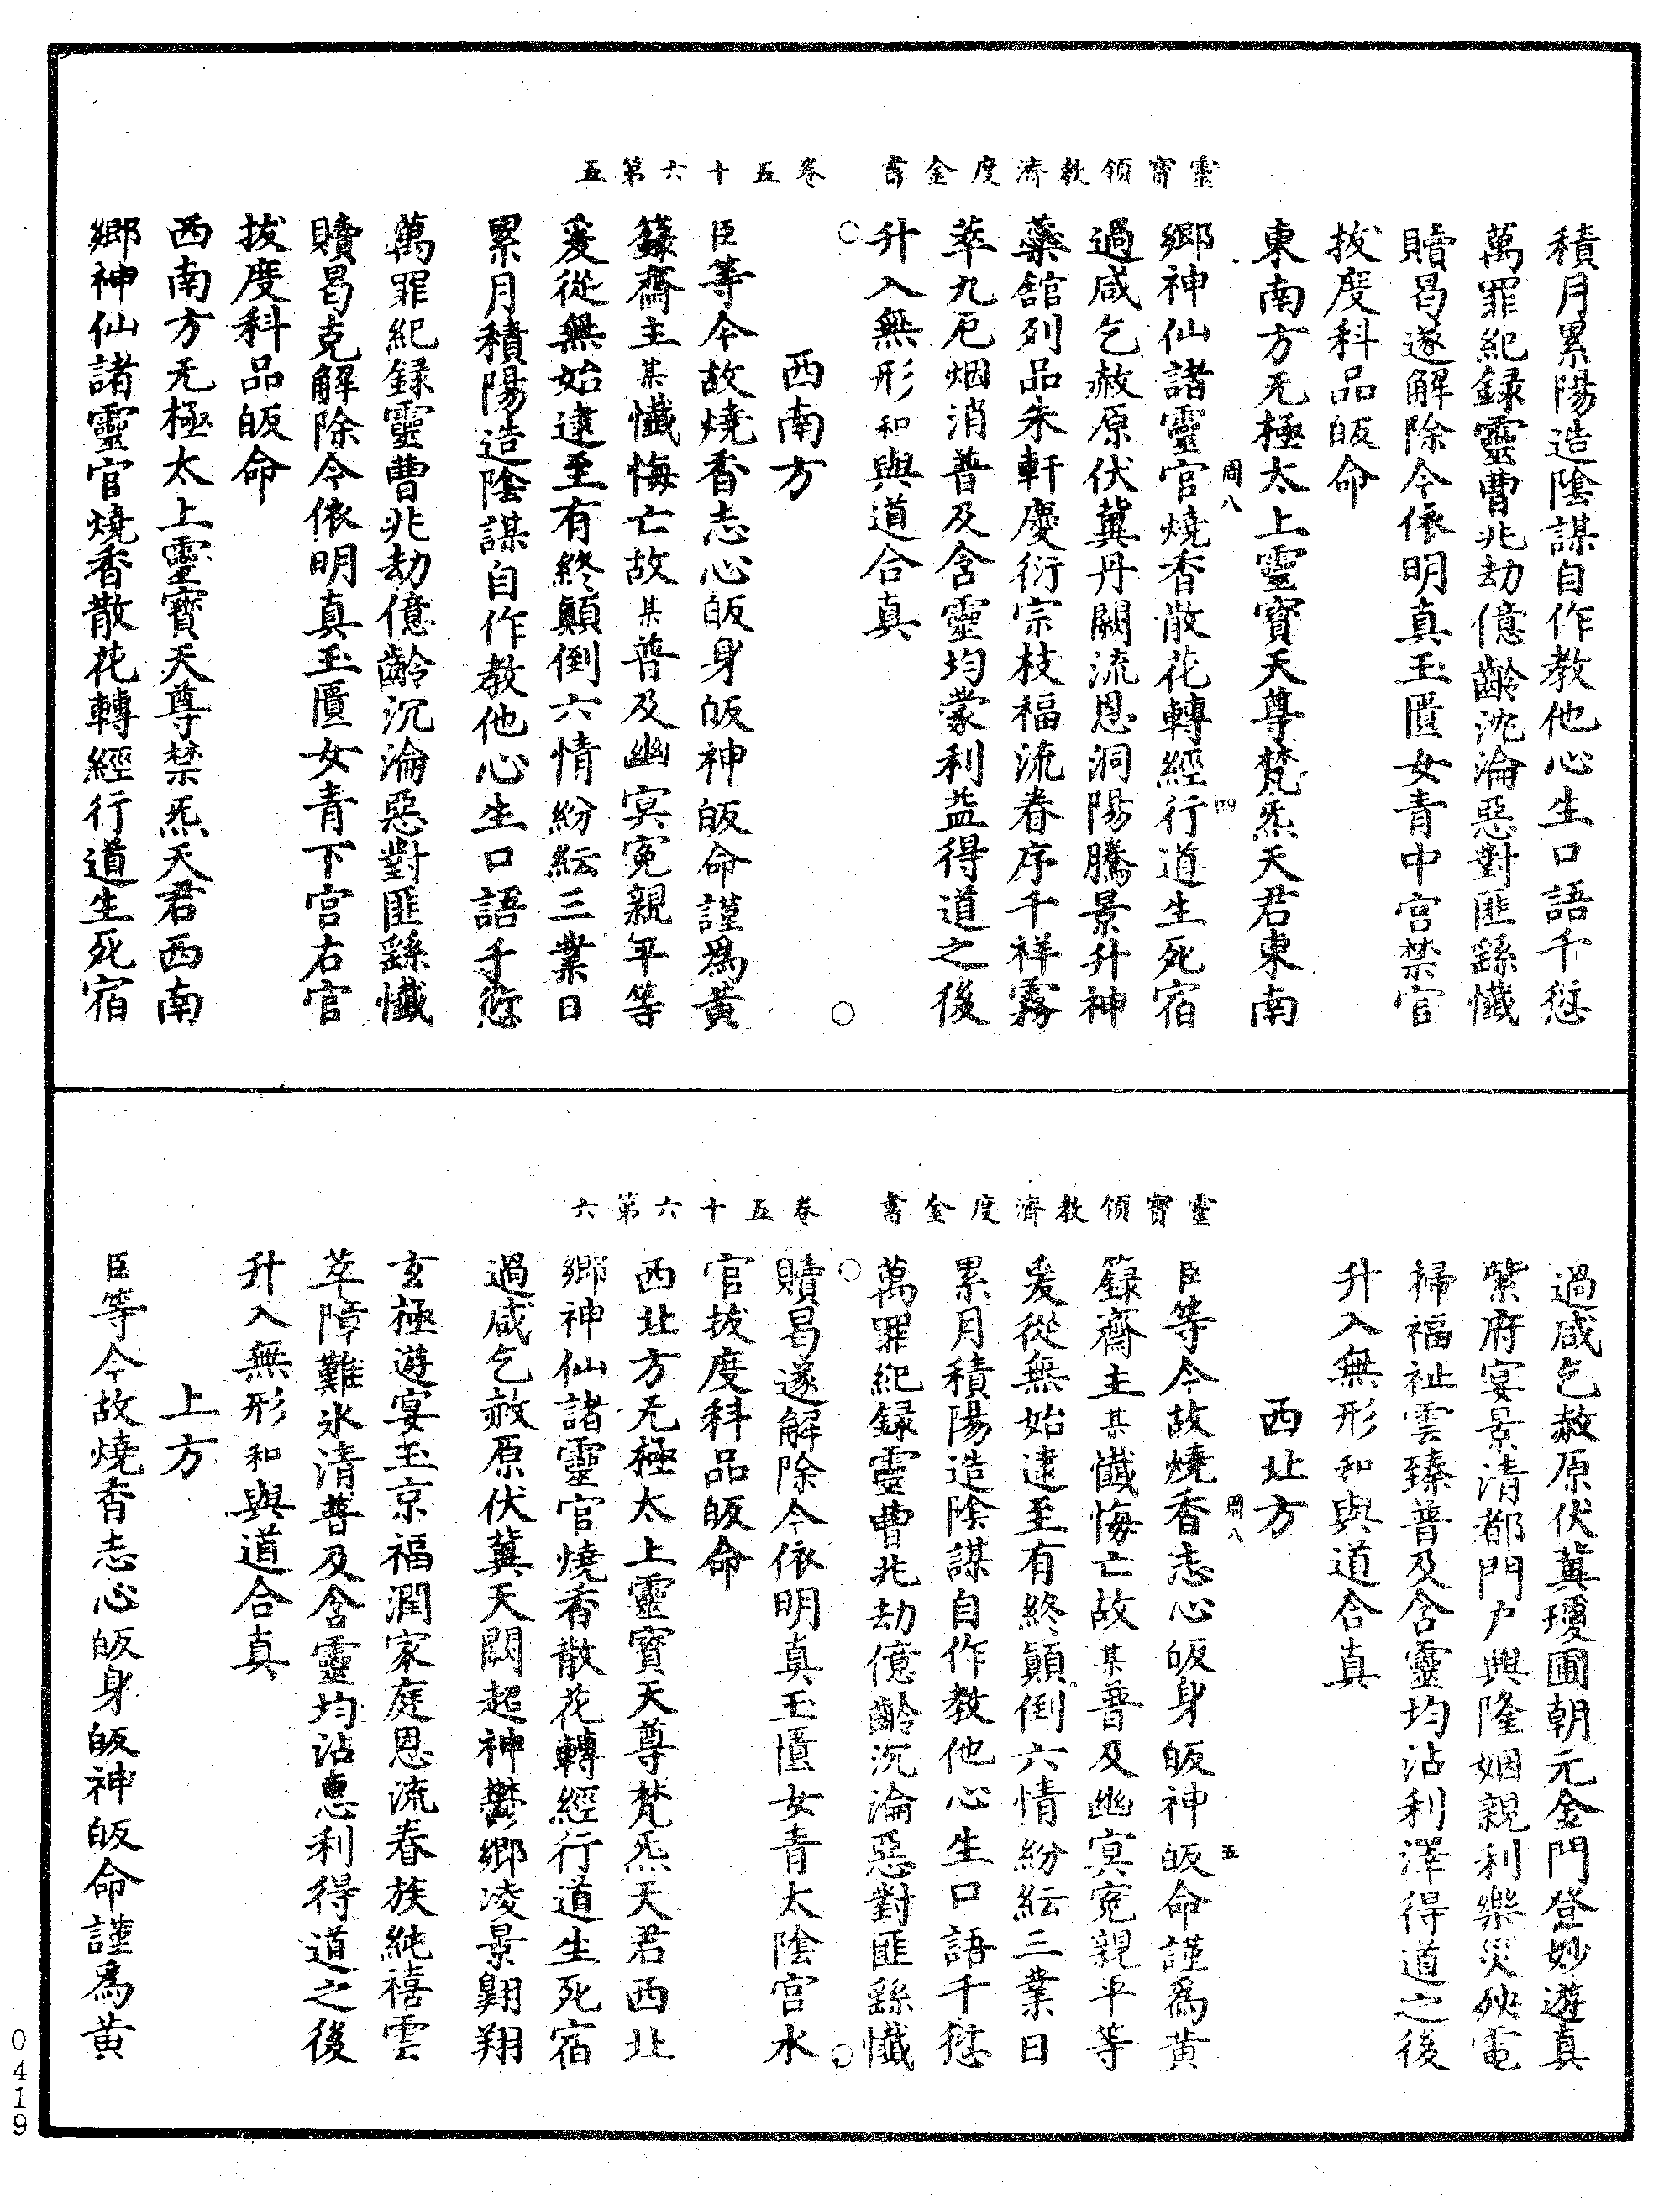 靈寶領教濟度金書　卷五十六第五
積月累陽造陰謀自作教他心生口語千愆
萬罪紀録靈曹兆劫億齡沈淪惡對匪繇懺
贖曷遂解除今依明真玉匱女青中宮禁官
拔度科品皈命
東南方无極太上靈寶天尊梵炁天君東南
周八　四
鄉神仙諸靈官燒香散花轉經行道生死宿
過咸乞赦原伏冀丹闕流恩洞陽騰景升神
藥館列品朱軒慶衍宗枝福流眷序千祥霧
萃九厄烟消普及含靈均蒙利益得道之後
升入無形和與道合真
西南方
臣等今故燒香志心皈身皈神皈命謹爲黃
籙齋主某懺悔亡故某普及幽冥冤親平等
爰從無始逮至有終顛倒六情紛紜三業日
累月積陽造陰謀自作教他心生口語千愆
萬罪紀録靈曹兆劫億齡沉淪惡對匪繇懺
贖曷克解除今依明真玉匱女青下宮右官
拔度科品皈命
西南方无極太上靈寶天尊禁炁天君西南
鄉神仙諸靈官燒香散花轉經行道生死宿
靈寶領教濟度金書　卷五十六第六
過咸乞赦原伏冀瓊圃朝元金門登妙遊真
紫府宴景清都門户興隆姻親利樂災殃電
掃福祉雲臻普及含靈均沾利澤得道之後
升入無形和與道合真
西北方
周八　五
臣等今故燒香志心皈身皈神皈命謹爲黃
籙齋主某懺悔亡故某普及幽冥冤親平等
爰從無始逮至有終顛倒六情紛紜三業日
累月積陽造陰謀自作教他心生口語千愆
萬罪紀録靈曹兆劫億齡沉淪惡對匪繇懺
贖曷遂解除今依明真玉匱女青太陰宮水
官拔度科品皈命
西北方无極太上靈寶天尊梵炁天君西北
鄉神仙諸靈官燒香散花轉經行道生死宿
過咸乞赦原伏冀天闕超神鬱鄉凌景翱翔
玄極遊宴玉京福潤家庭恩流眷族純禧雲
萃障難氷清普及含靈均沾惠利得道之後
升入無形和與道合真
上方
臣等今故燒香志心皈身皈神皈命謹爲黃
0419